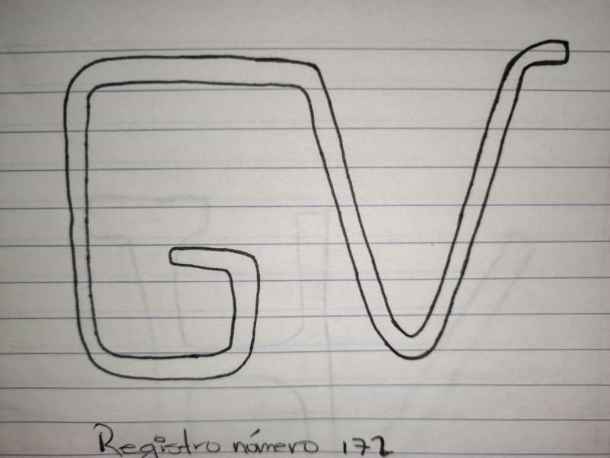 GV
Registro número 172